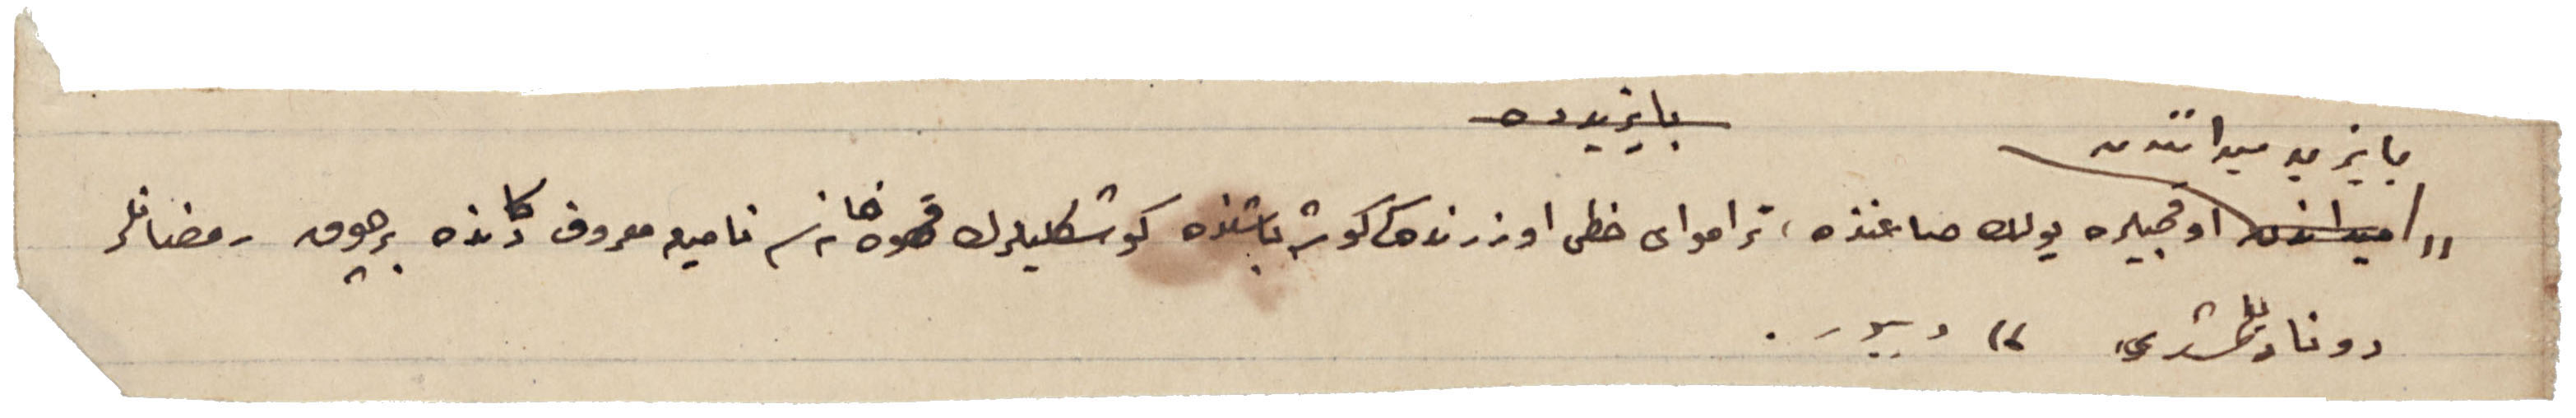 بايزيدده
بايزيد ميداننده
" ميداندن اوقجيلره يولك صاغنده، تراموای خطی اوزرنده‌كی كوشه باشنده كوشكليلرك قهوه خانه سی ناميله معروف دكانده بر چوق رمضانلر
دوناديلمشدی، " دييور.